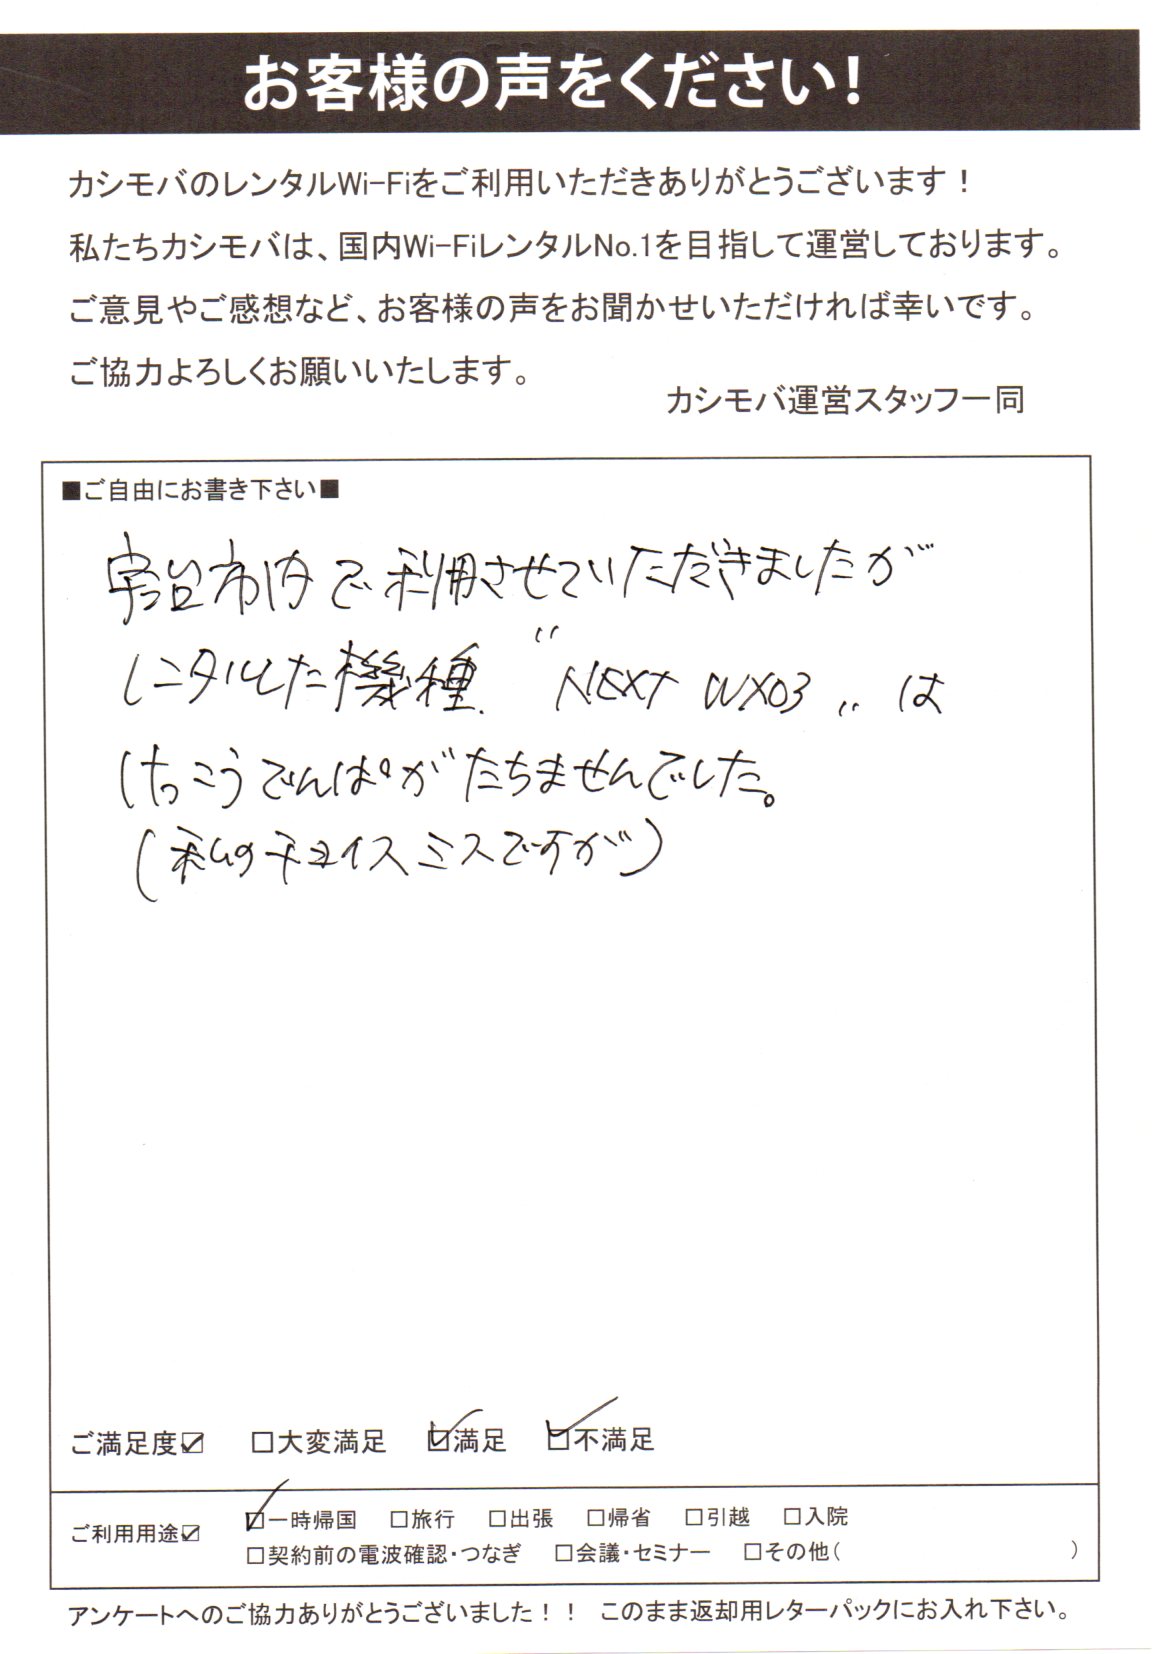 お客様の声をください!
カシモバのレンタルWi-Fiをご利用いただきありがとうございます!
私たちカシモバは、国内Wi-FiレンタルNo.1を目指して運営しております。
ご意見やご感想など、お客様の声をお聞かせいただければ幸いです。
ご協力よろしくお願いいたします。
カシモバ運営スタッフ一同
■ご自由にお書き下さい■
宇治市内で利用させていただきましたが
レンタルした機種 "NEXT WX03" は
けっこうでんぱがたちませんでした。
(私のチョイスミスですが)
ご満足度☑ □大変満足 ☑満足 ☑不満足
ご利用用途☑ ☑一時帰国 □旅行 □出張 □帰省 □引越 □入院
□契約前の電波確認・つなぎ □会議・セミナー □その他( )
アンケートへのご協力ありがとうございました!! このまま返却用レターパックにお入れ下さい。